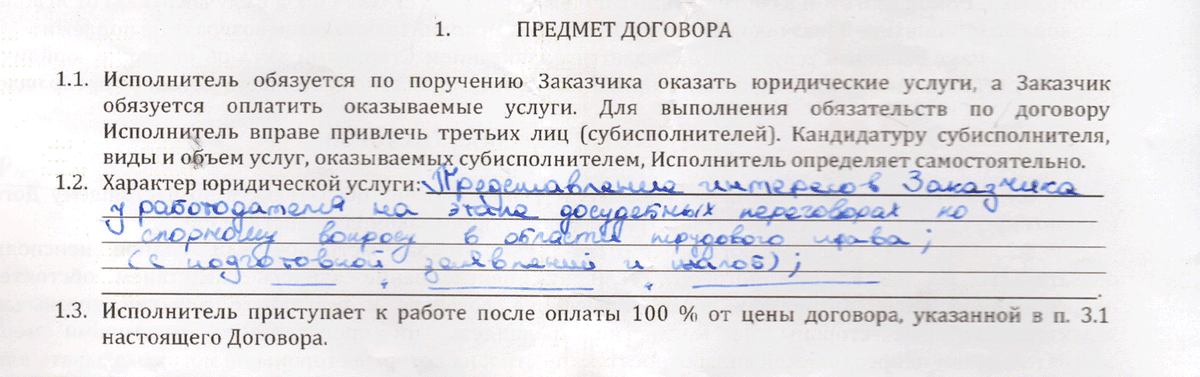 1. ПРЕДМЕТ ДОГОВОРА
1.1. Исполнитель обязуется по поручению Заказчика оказать юридические услуги, а Заказчик
обязуется оплатить оказываемые услуги. Для выполнения обязательств по договору
Исполнитель вправе привлечь третьих лиц (субисполнителей). Кандидатуру субисполнителя,
виды и объем услуг, оказываемых субисполнителем, Исполнитель определяет самостоятельно.
1.2. Характер юридической услуги: Представление интересов Заказчика
у работодателя на этапе досудебных переговорах по
спорному вопросу в области трудового права;
(с подготовкой заявлений и жалоб);
1.3. Исполнитель приступает к работе после оплаты 100 % от цены договора, указанной в п. 3.1
настоящего Договора.